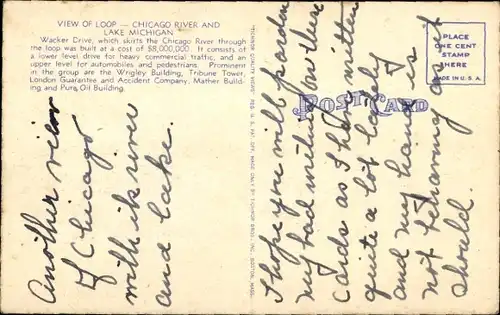 VIEW OF LOOP — CHICAGO RIVER AND
LAKE MICHIGAN
Wacker Drive, which skirts the Chicago River through
the loop was built at a cost of $8,000,000. It consists of
a lower level drive for heavy commercial traffic, and an
upper level for automobiles and pedestrians. Prominent
in the group are the Wrigley Building, Tribune Tower,
London Guarantee and Accident Company, Mather Build-
ing and Pure Oil Building.
Another view
of Chicago
with its river
and lake.
POST CARD
PLACE
ONE CENT
STAMP
HERE
MADE IN U.S.A.
I hope you will pardon
my bad writing on these
cards as I have written
quite a lot lately
and my hand is
not behaving as it
should.